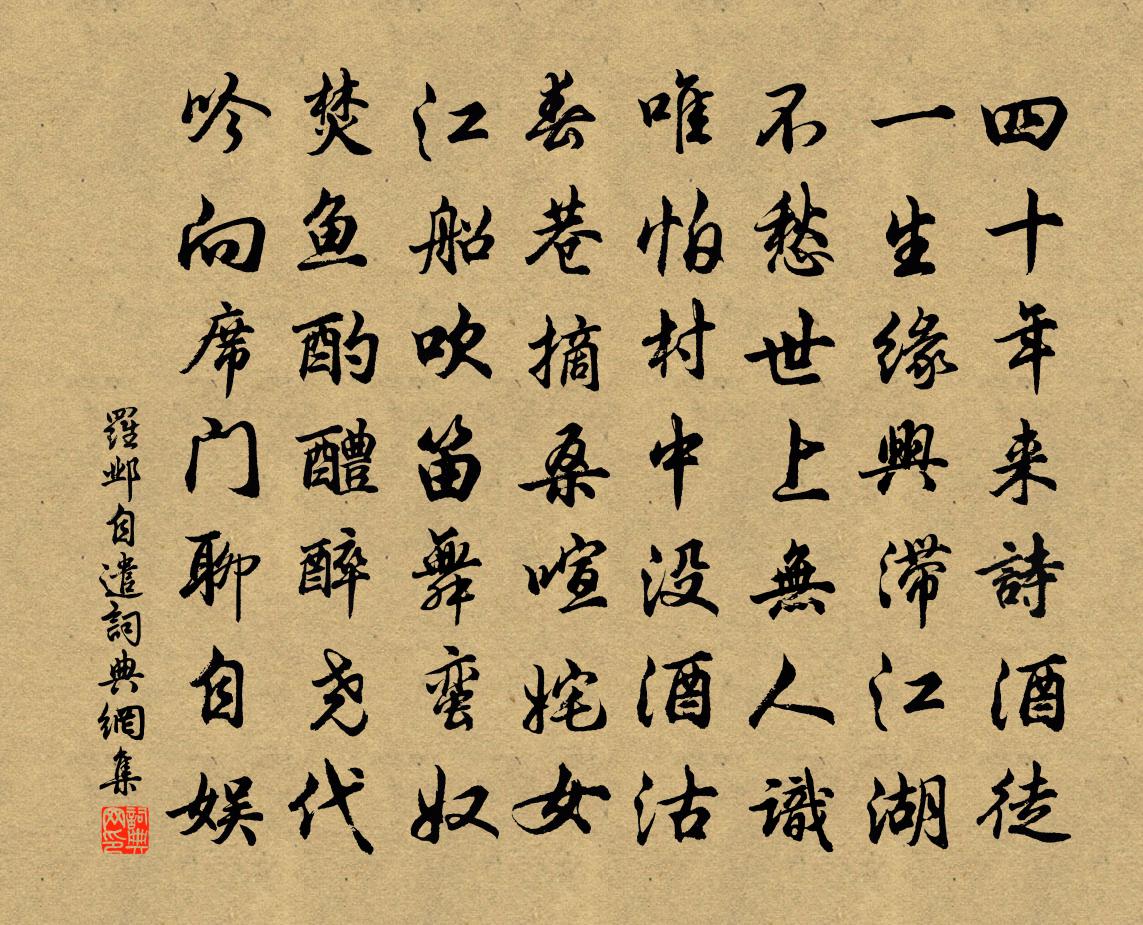 四十年来詩酒徒
一生缘興滞江湖
不愁世上無人識
唯怕村中没酒沽
春巷摘桑喧姹女
江船吹笛舞蛮奴
焚鱼酌醴醉尭代
吟向席门聊自娱
羅邺自遣詞典網集
詞典网印